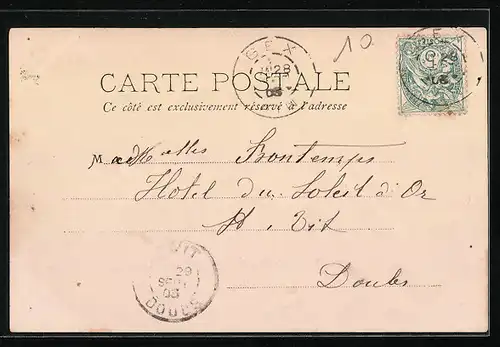 10
GEX
28
03
CARTE POSTALE
Ce côté est exclusivement réservé à l'adresse
Mesdelles Bontemps
Hotel du Soleil d'Or
St. Vit
Doubs
VIT
29
SEPT
03
DOUBS